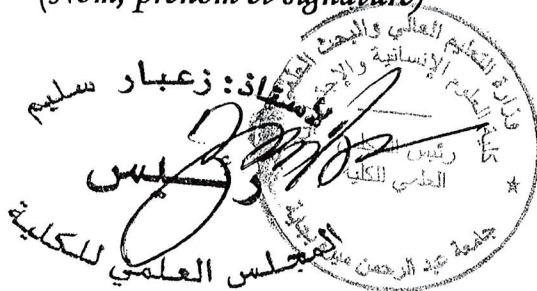 (Nom, prénom et signature)
الأستاذ: زعبار سليم
رئيس
المجلس العلمي للكلية
وزارة التعليم العالي والبحث العلمي
كلية العلوم الإنسانية و
رئيس
العلمي للكلية
جامعة عبد الرحمن ميرة بجاية